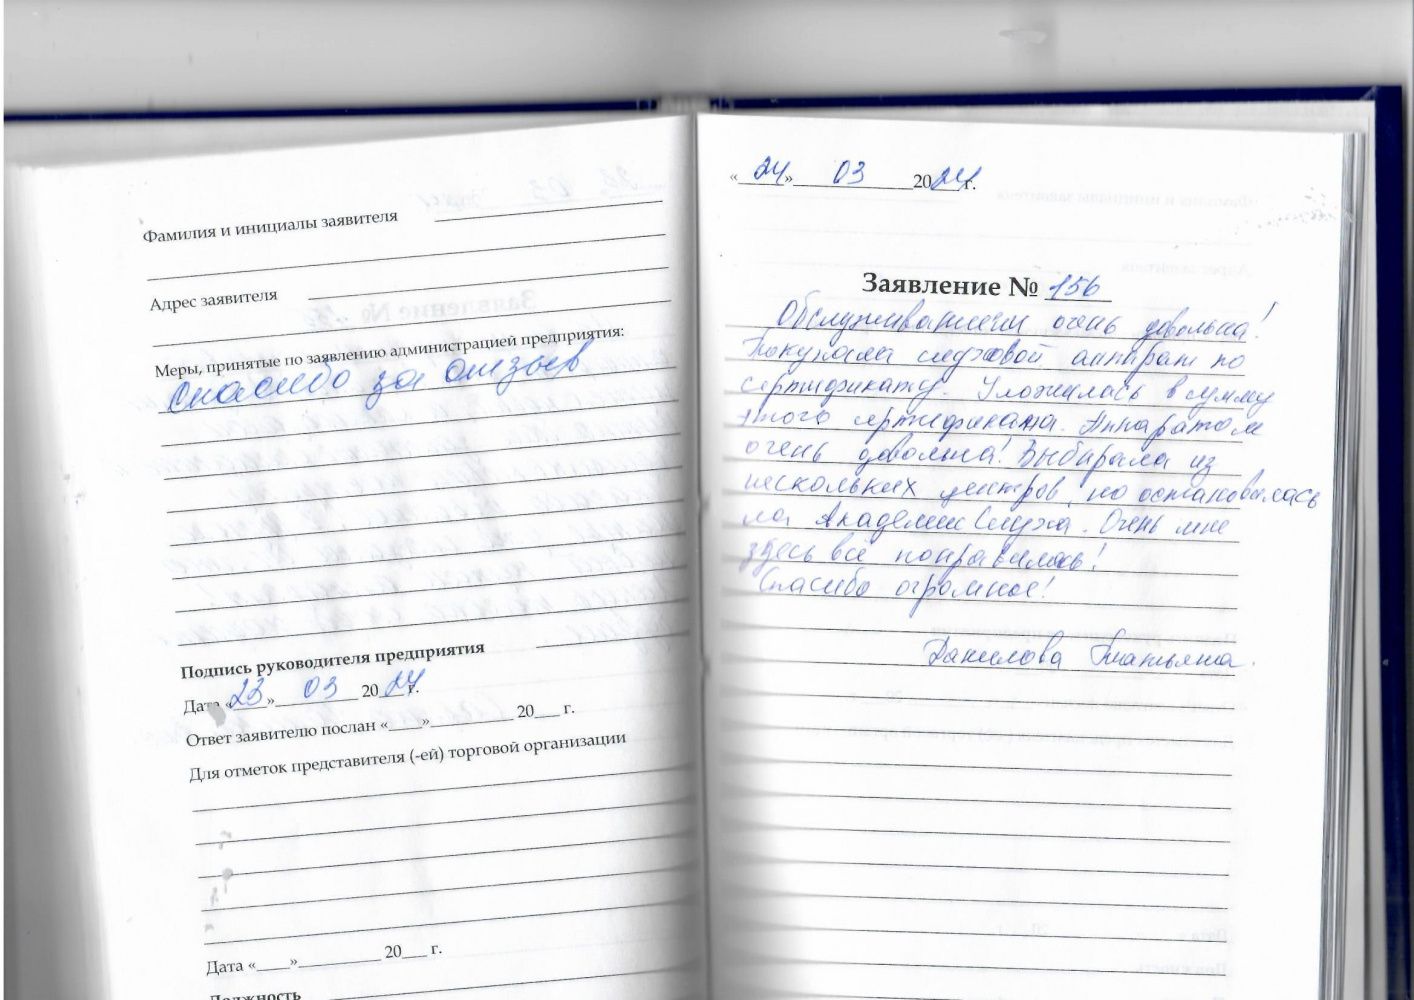 Фамилия и инициалы заявителя
Адрес заявителя
Меры, принятые по заявлению администрацией предприятия:
спасибо за отзыв
Подпись руководителя предприятия
Дата «23» 03 2024 г.
Ответ заявителю послан «____»__________ 20___ г.
Для отметок представителя (-ей) торговой организации
Дата «____»__________ 20___ г.
Должность
«24» 03 2024 г.
Заявление № 156
Обслуживанием очень довольна!
Покупала слуховой аппарат по
сертификату. Уложилась в сумму
этого сертификата. Аппаратом
очень довольна! Выбирала из
нескольких центров, но остановилась
на Академии Слуха. Очень мне
здесь всё понравилось!
Спасибо огромное!
Данилова Татьяна.